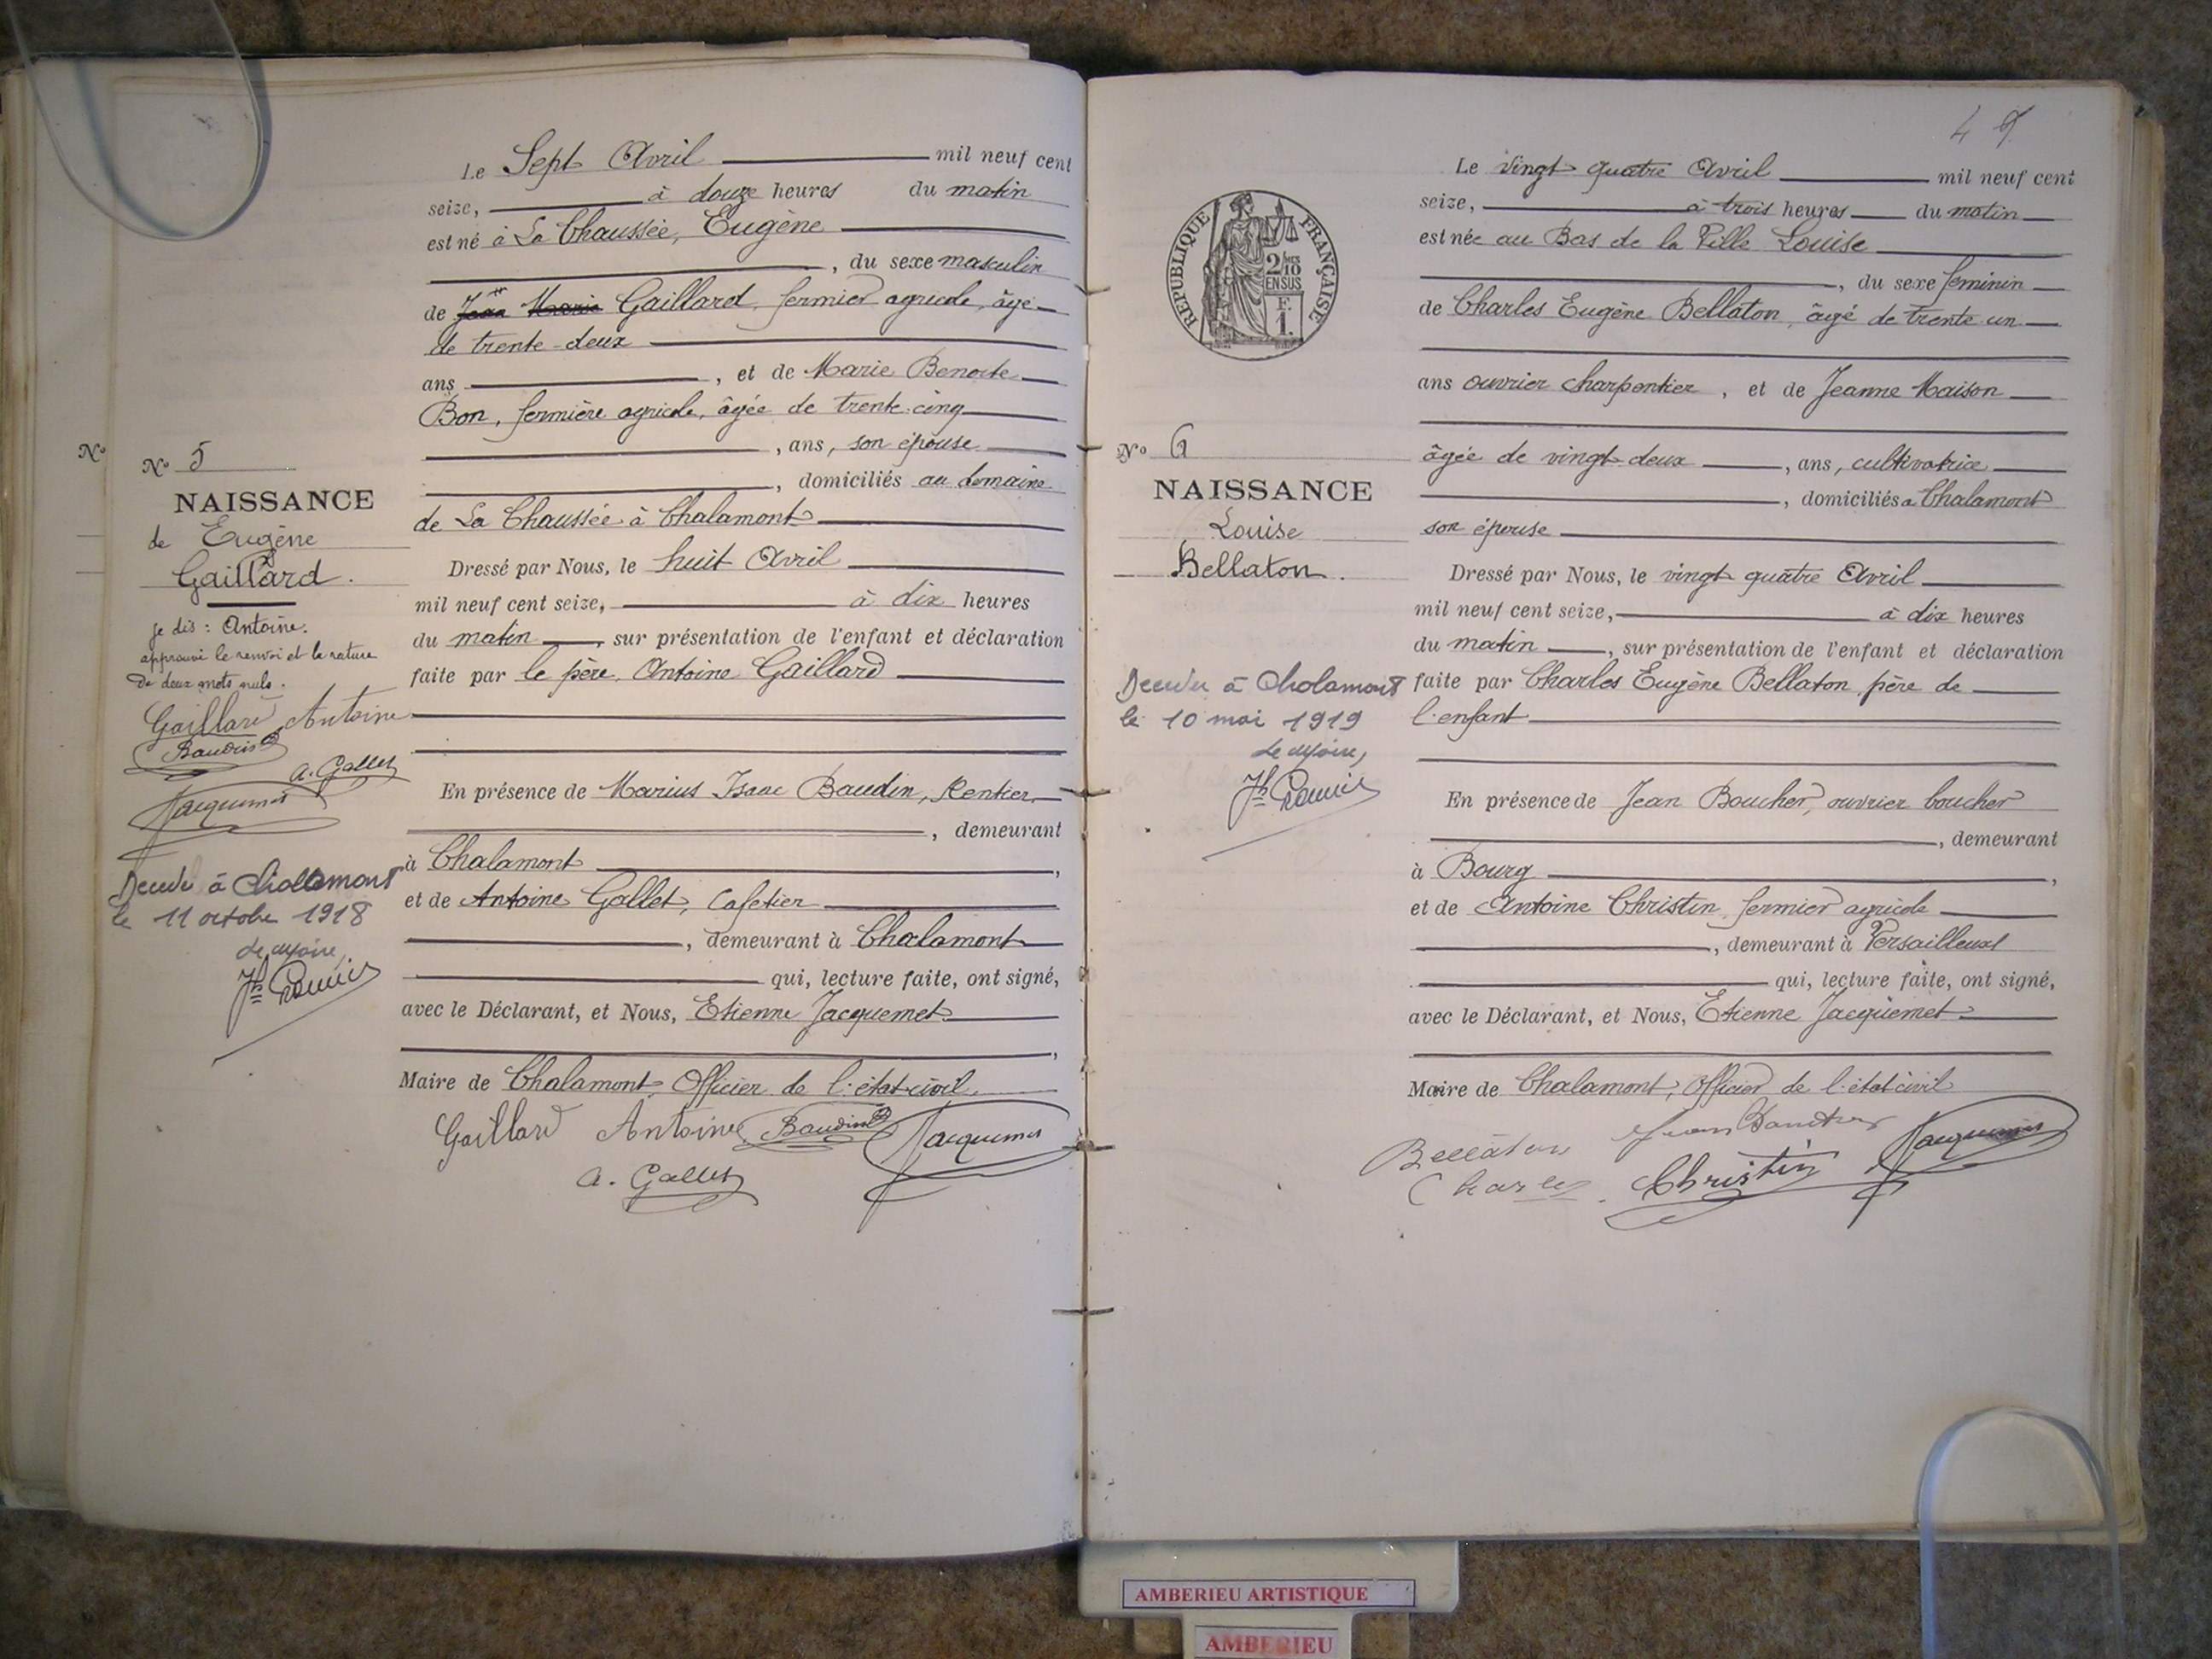 N° 5
NAISSANCE
de Eugène
Gaillard.
je dis : Antoine.
approuvé le renvoi et la rature
de deux mots nuls.
Gaillard Antoine
Baudin
A. Gallet
Jacquemet
Décédé à Chalamont
le 11 octobre 1918
le maire,
N°
Le Sept Avril mil neuf cent
seize, à douze heures du matin
est né à La Chaussée, Eugène
, du sexe masculin
de Jean Marie Gaillard, fermier agricole, âgé
de trente-deux
ans, et de Marie Benoite
Bon, fermière agricole, âgée de trente-cinq
, ans, son épouse
, domiciliés au domaine
de La Chaussée à Chalamont
Dressé par Nous, le huit Avril
mil neuf cent seize, à dix heures
du matin, sur présentation de l'enfant et déclaration
faite par le père, Antoine Gaillard
En présence de Marius Isaac Baudin, Rentier,
, demeurant
à Chalamont,
et de Antoine Gallet, Cafetier
, demeurant à Chalamont
qui, lecture faite, ont signé,
avec le Déclarant, et Nous, Etienne Jacquemet
,
Maire de Chalamont, Officier de l'état-civil.
Gaillard Antoine Baudin Jacquemet
A. Gallet
47
RÉPUBLIQUE FRANÇAISE
2/10
EN SUS
F.
1.
N° 6
NAISSANCE
Louise
Bellaton.
Décédée à Chalamont
le 10 mai 1919
le maire,
Le vingt quatre Avril mil neuf cent
seize, à trois heures du matin
est née au Bas de la Ville Louise
, du sexe féminin
de Charles Eugène Bellaton, âgé de trente un
ans ouvrier charpentier, et de Jeanne Maison
âgée de vingt-deux, ans, cultivatrice
, domiciliés à Chalamont
son épouse
Dressé par Nous, le vingt quatre Avril
mil neuf cent seize, à dix heures
du matin, sur présentation de l'enfant et déclaration
faite par Charles Eugène Bellaton, père de
l'enfant
En présence de Jean Boucher, ouvrier boucher
, demeurant
à Bourg,
et de Antoine Christin, fermier agricole
, demeurant à Versailleux
qui, lecture faite, ont signé,
avec le Déclarant, et Nous, Etienne Jacquemet
Maire de Chalamont, Officier de l'état civil
Bellaton Jean Boucher Jacquemet
Charles Christin
AMBERIEU ARTISTIQUE
AMBERIEU